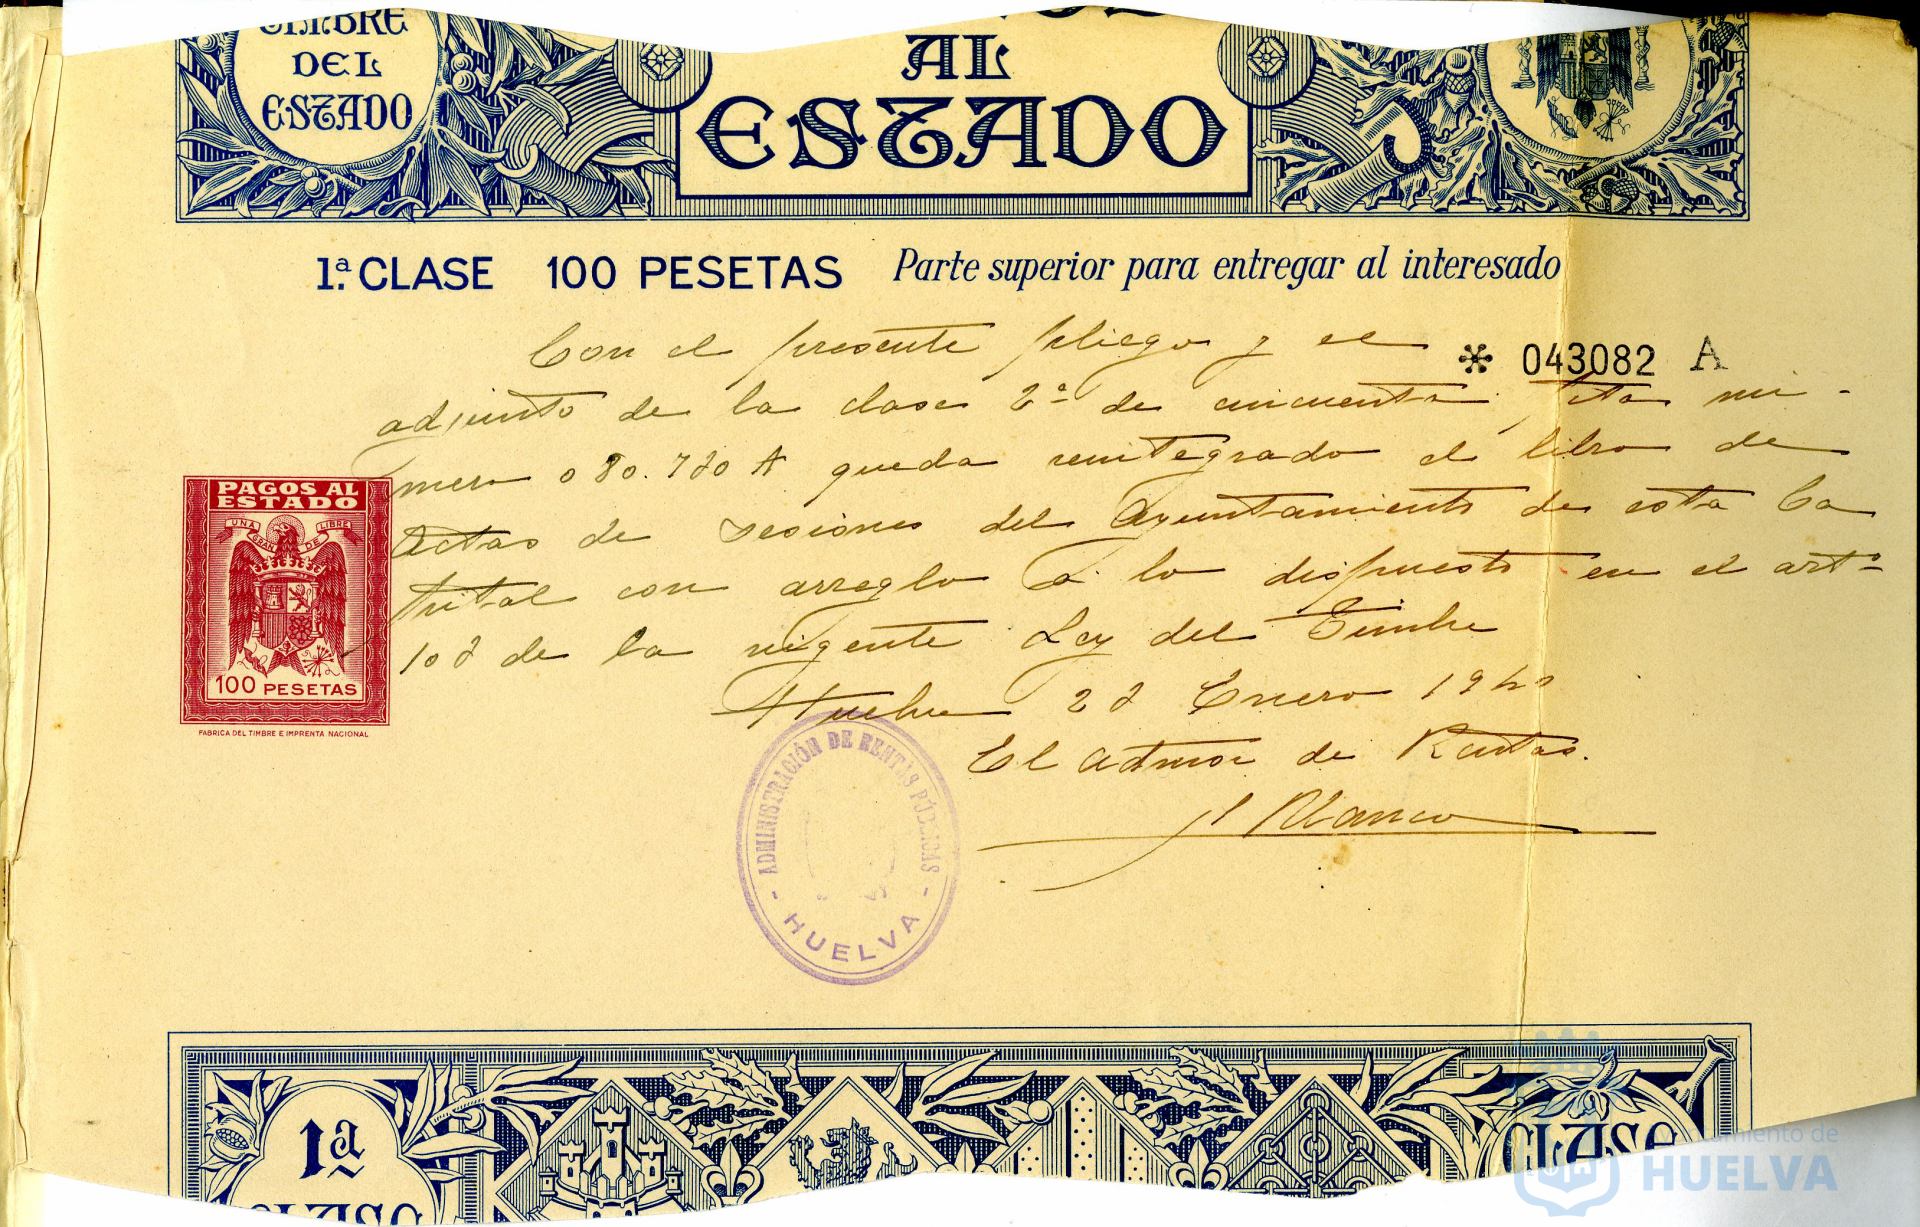 TIMBRE
DEL
ESTADO
AL
ESTADO
1ª CLASE 100 PESETAS Parte superior para entregar al interesado
* 043082 A
Con el presente pliego y el
adjunto de la clase 2ª de cincuenta ptas nú-
mero 080.720 A queda reintegrado el libro de
Actas de sesiones del Ayuntamiento de esta Ca
pital con arreglo a lo dispuesto en el artº
102 de la vigente Ley del Timbre
Huelva 22 Enero 1940
El Admor de Rentas.
J Blanco
PAGOS AL
ESTADO
UNA GRANDE LIBRE
100 PESETAS
FABRICA DEL TIMBRE E IMPRENTA NACIONAL
ADMINISTRACIÓN DE RENTAS PÚBLICAS
- HUELVA -
1ª
CLASE
CLASE
Ayuntamiento de
HUELVA